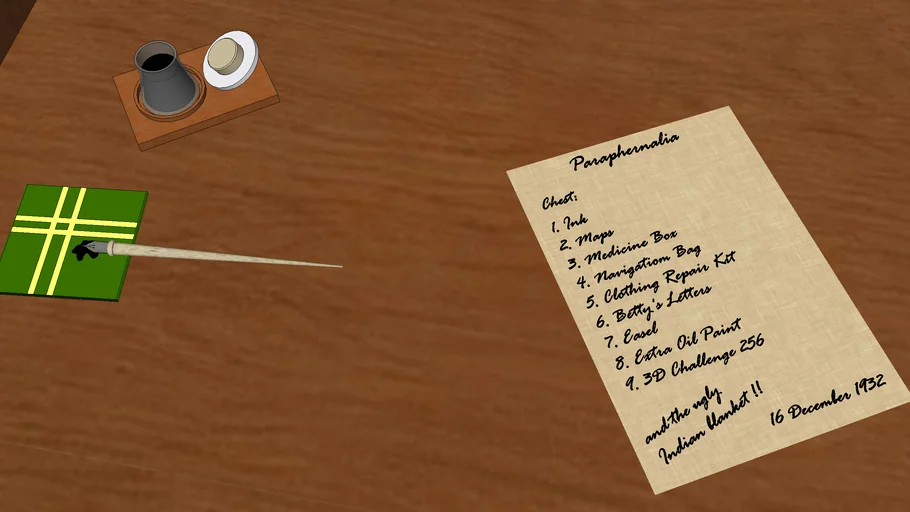 Paraphernalia
Chest:
1. Ink
2. Maps
3. Medicine Box
4. Navigation Bag
5. Clothing Repair Kit
6. Betty's Letters
7. Easel
8. Extra Oil Paint
9. 3D Challenge 256
and the ugly
Indian blanket !!
16 December 1932